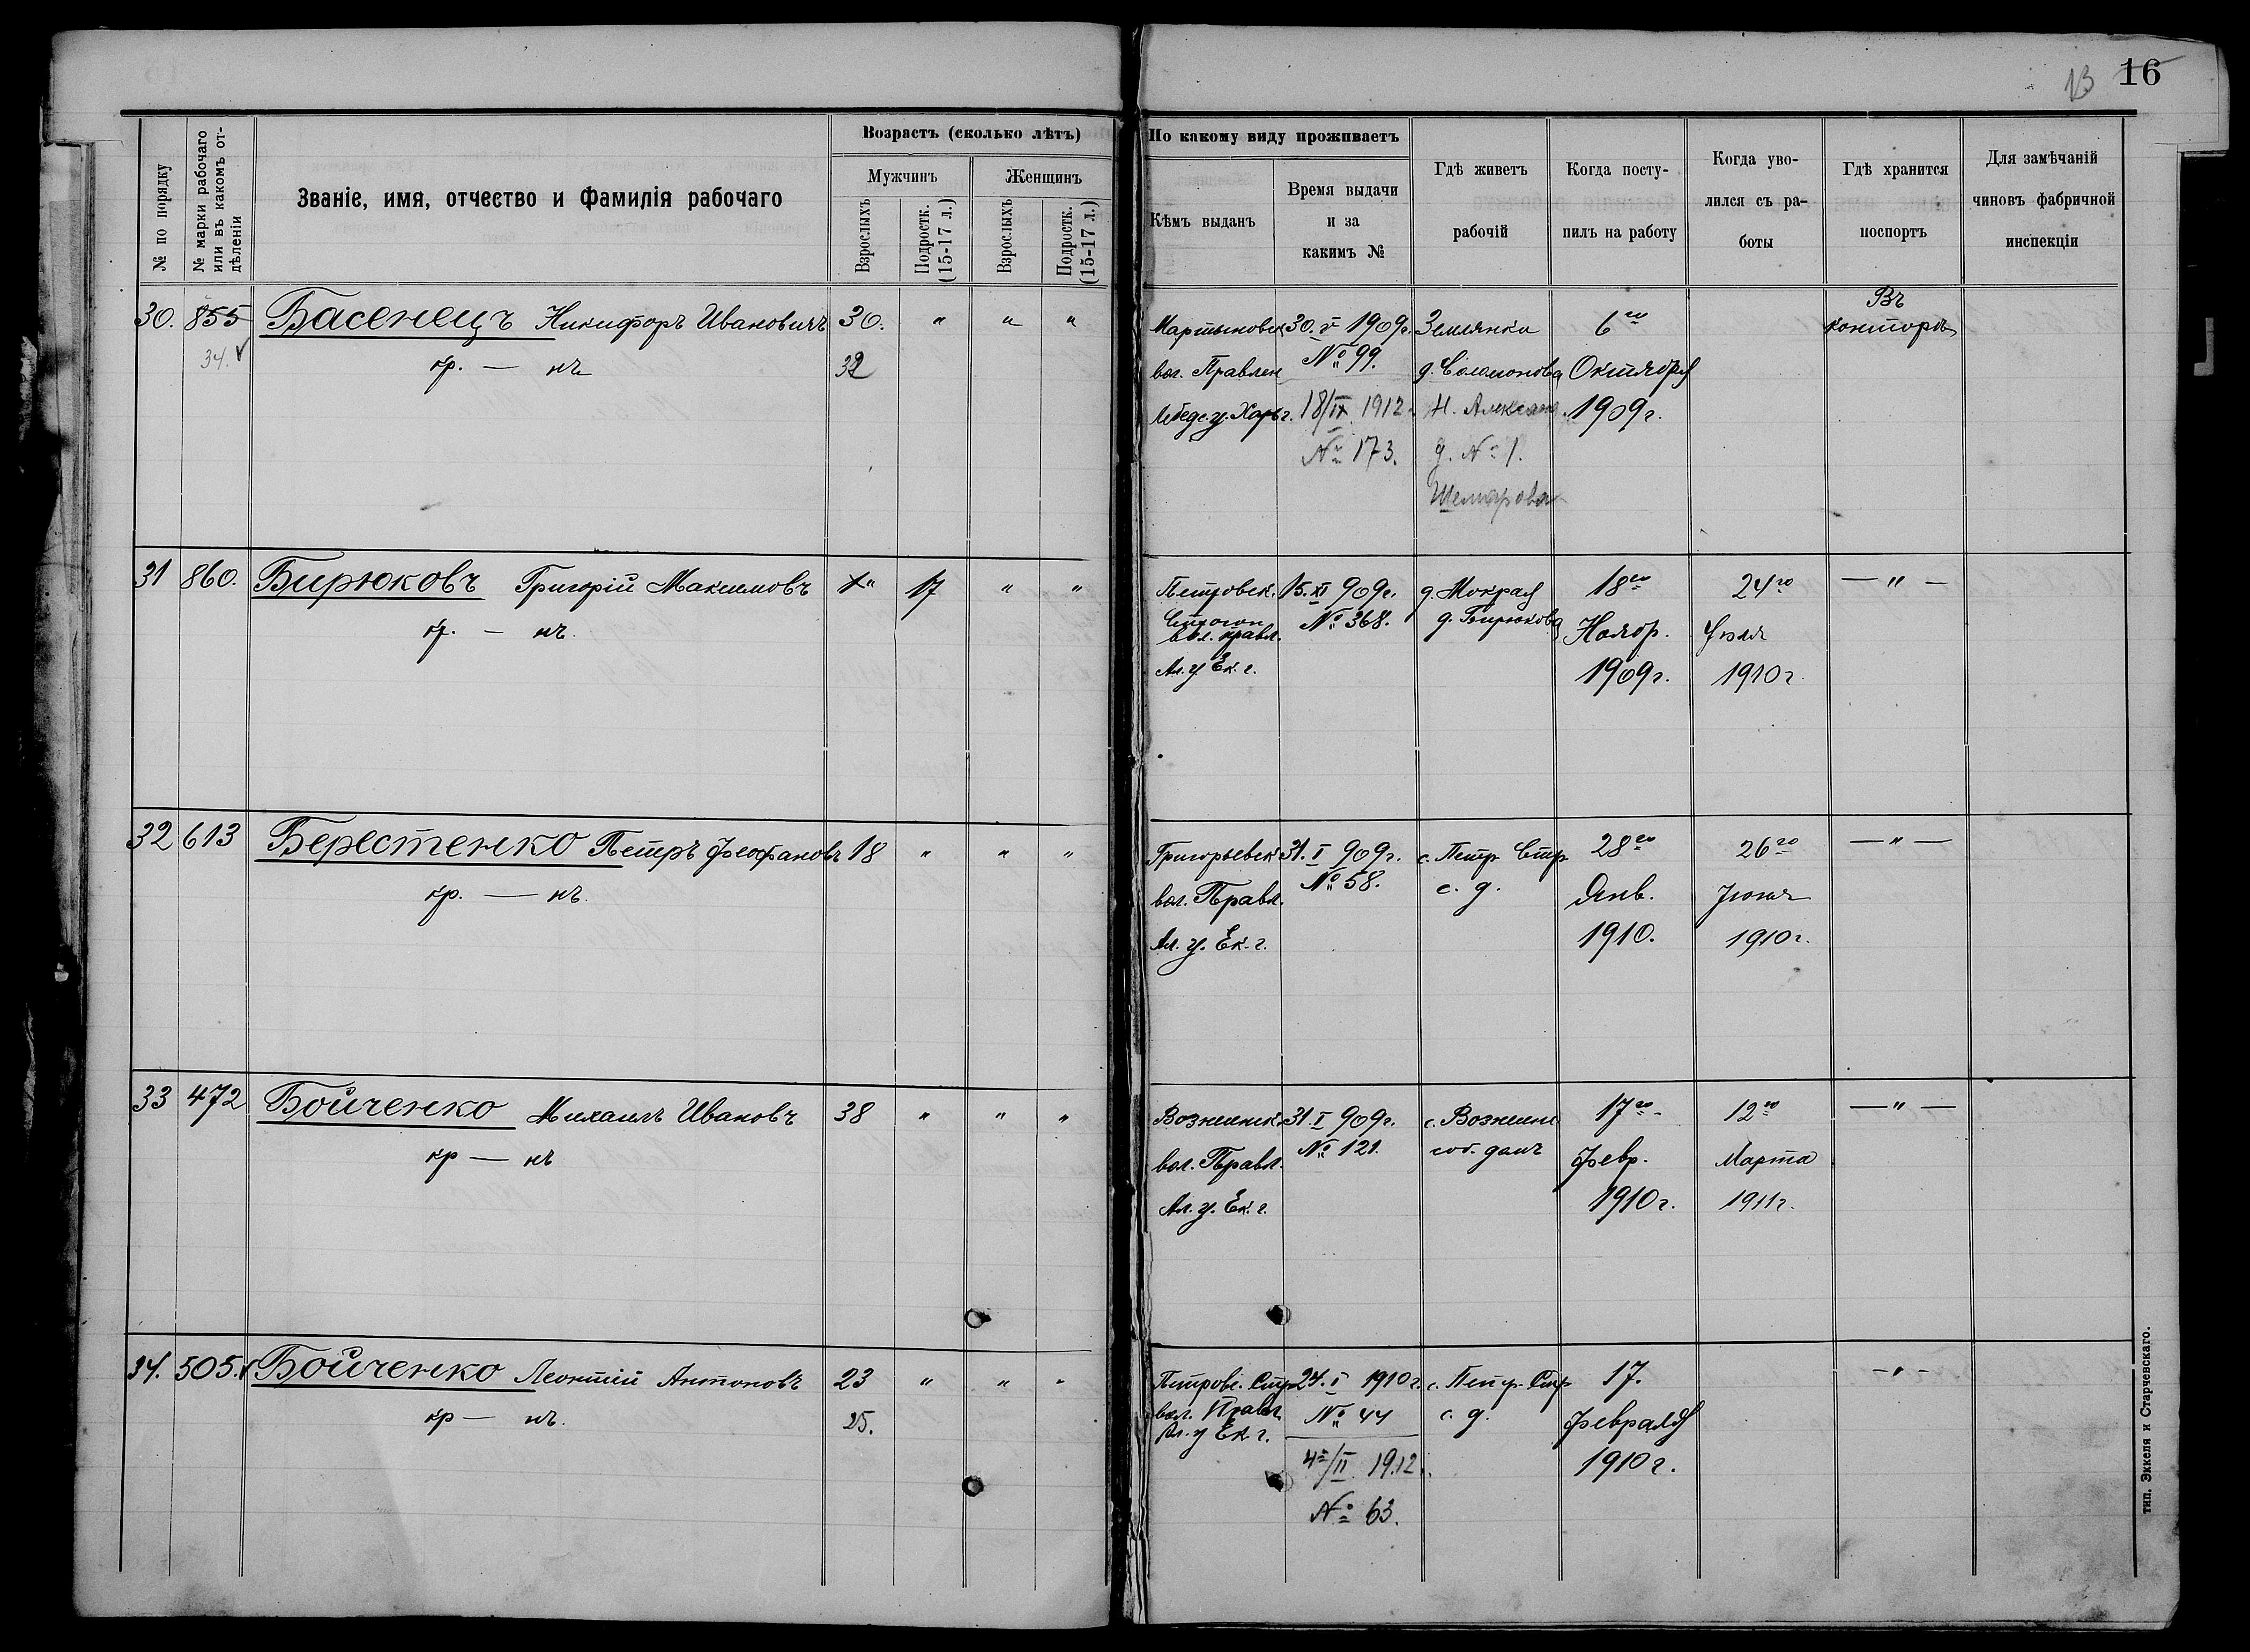 13 16
№ по порядку
№ марки рабочаго
или въ какомъ от-
дѣленіи
Званіе, имя, отчество и фамилія рабочаго
Возрастъ (сколько лѣтъ)
Мужчинъ
Женщинъ
Взрослыхъ
Подростк.
(15-17 л.)
Взрослыхъ
Подростк.
(15-17 л.)
По какому виду проживаетъ
Кѣмъ выданъ
Время выдачи
и за
какимъ №
Гдѣ живетъ
рабочій
Когда посту-
пилъ на работу
Когда уво-
лился съ ра-
боты
Гдѣ хранится
поспортъ
Для замѣчаній
чиновъ фабричной
инспекціи
30. 855 Басенецъ Никифоръ Ивановичъ 30. " " "
34. кр. — нъ 32
Мартыновск. 30. V 1909г. Землянки 6го Въ
вол. Правлен № 99. д. Соломонова Октября конторѣ
Лебед. у. Харьк. г. 18/IX 1912 Н. Алексан. 1909г.
№ 173. д. № 1.
31 860. Бирюковъ Григорій Максимовъ " 17 " "
кр. — нъ.
Петровск. 15. XI 909г. д. Мокрая 18го 24го — " —
№ 368. д. Бирюкова Ноябр. Іюля
вол. правл.
Ал. у Ек. г. 1909г. 1910г.
32 613 Берестенко Петръ Феофановъ 18 " " "
кр. — нъ.
Григорьевск 31. I 909г. с. Петр Стр 28го 26го — " —
вол. Правл. № 58. с. д. Янв. Іюня
Ал. у. Ек. г. 1910. 1910г.
33 472 Бойченко Михаилъ Ивановъ 38 " " "
кр — нъ
Вознесенск. 31. I 909г. с. Вознесенс 17го 12го — " —
вол. Правл. № 121. соб. домъ февр. Марта
Ал. у. Ек. г. 1910г. 1911г.
34. 505. Бойченко Леонтій Антоновъ 23 " " "
кр — нъ. 25.
Петровс. Стр 24. I 1910г. с. Петр. Стр 17. — " —
вол. Правл. № 44 с. д. февраля
Ал. у Ек. г.
4го/II 1912. 1910г.
№ 63.
тип. Эккеля и Старчевскаго.